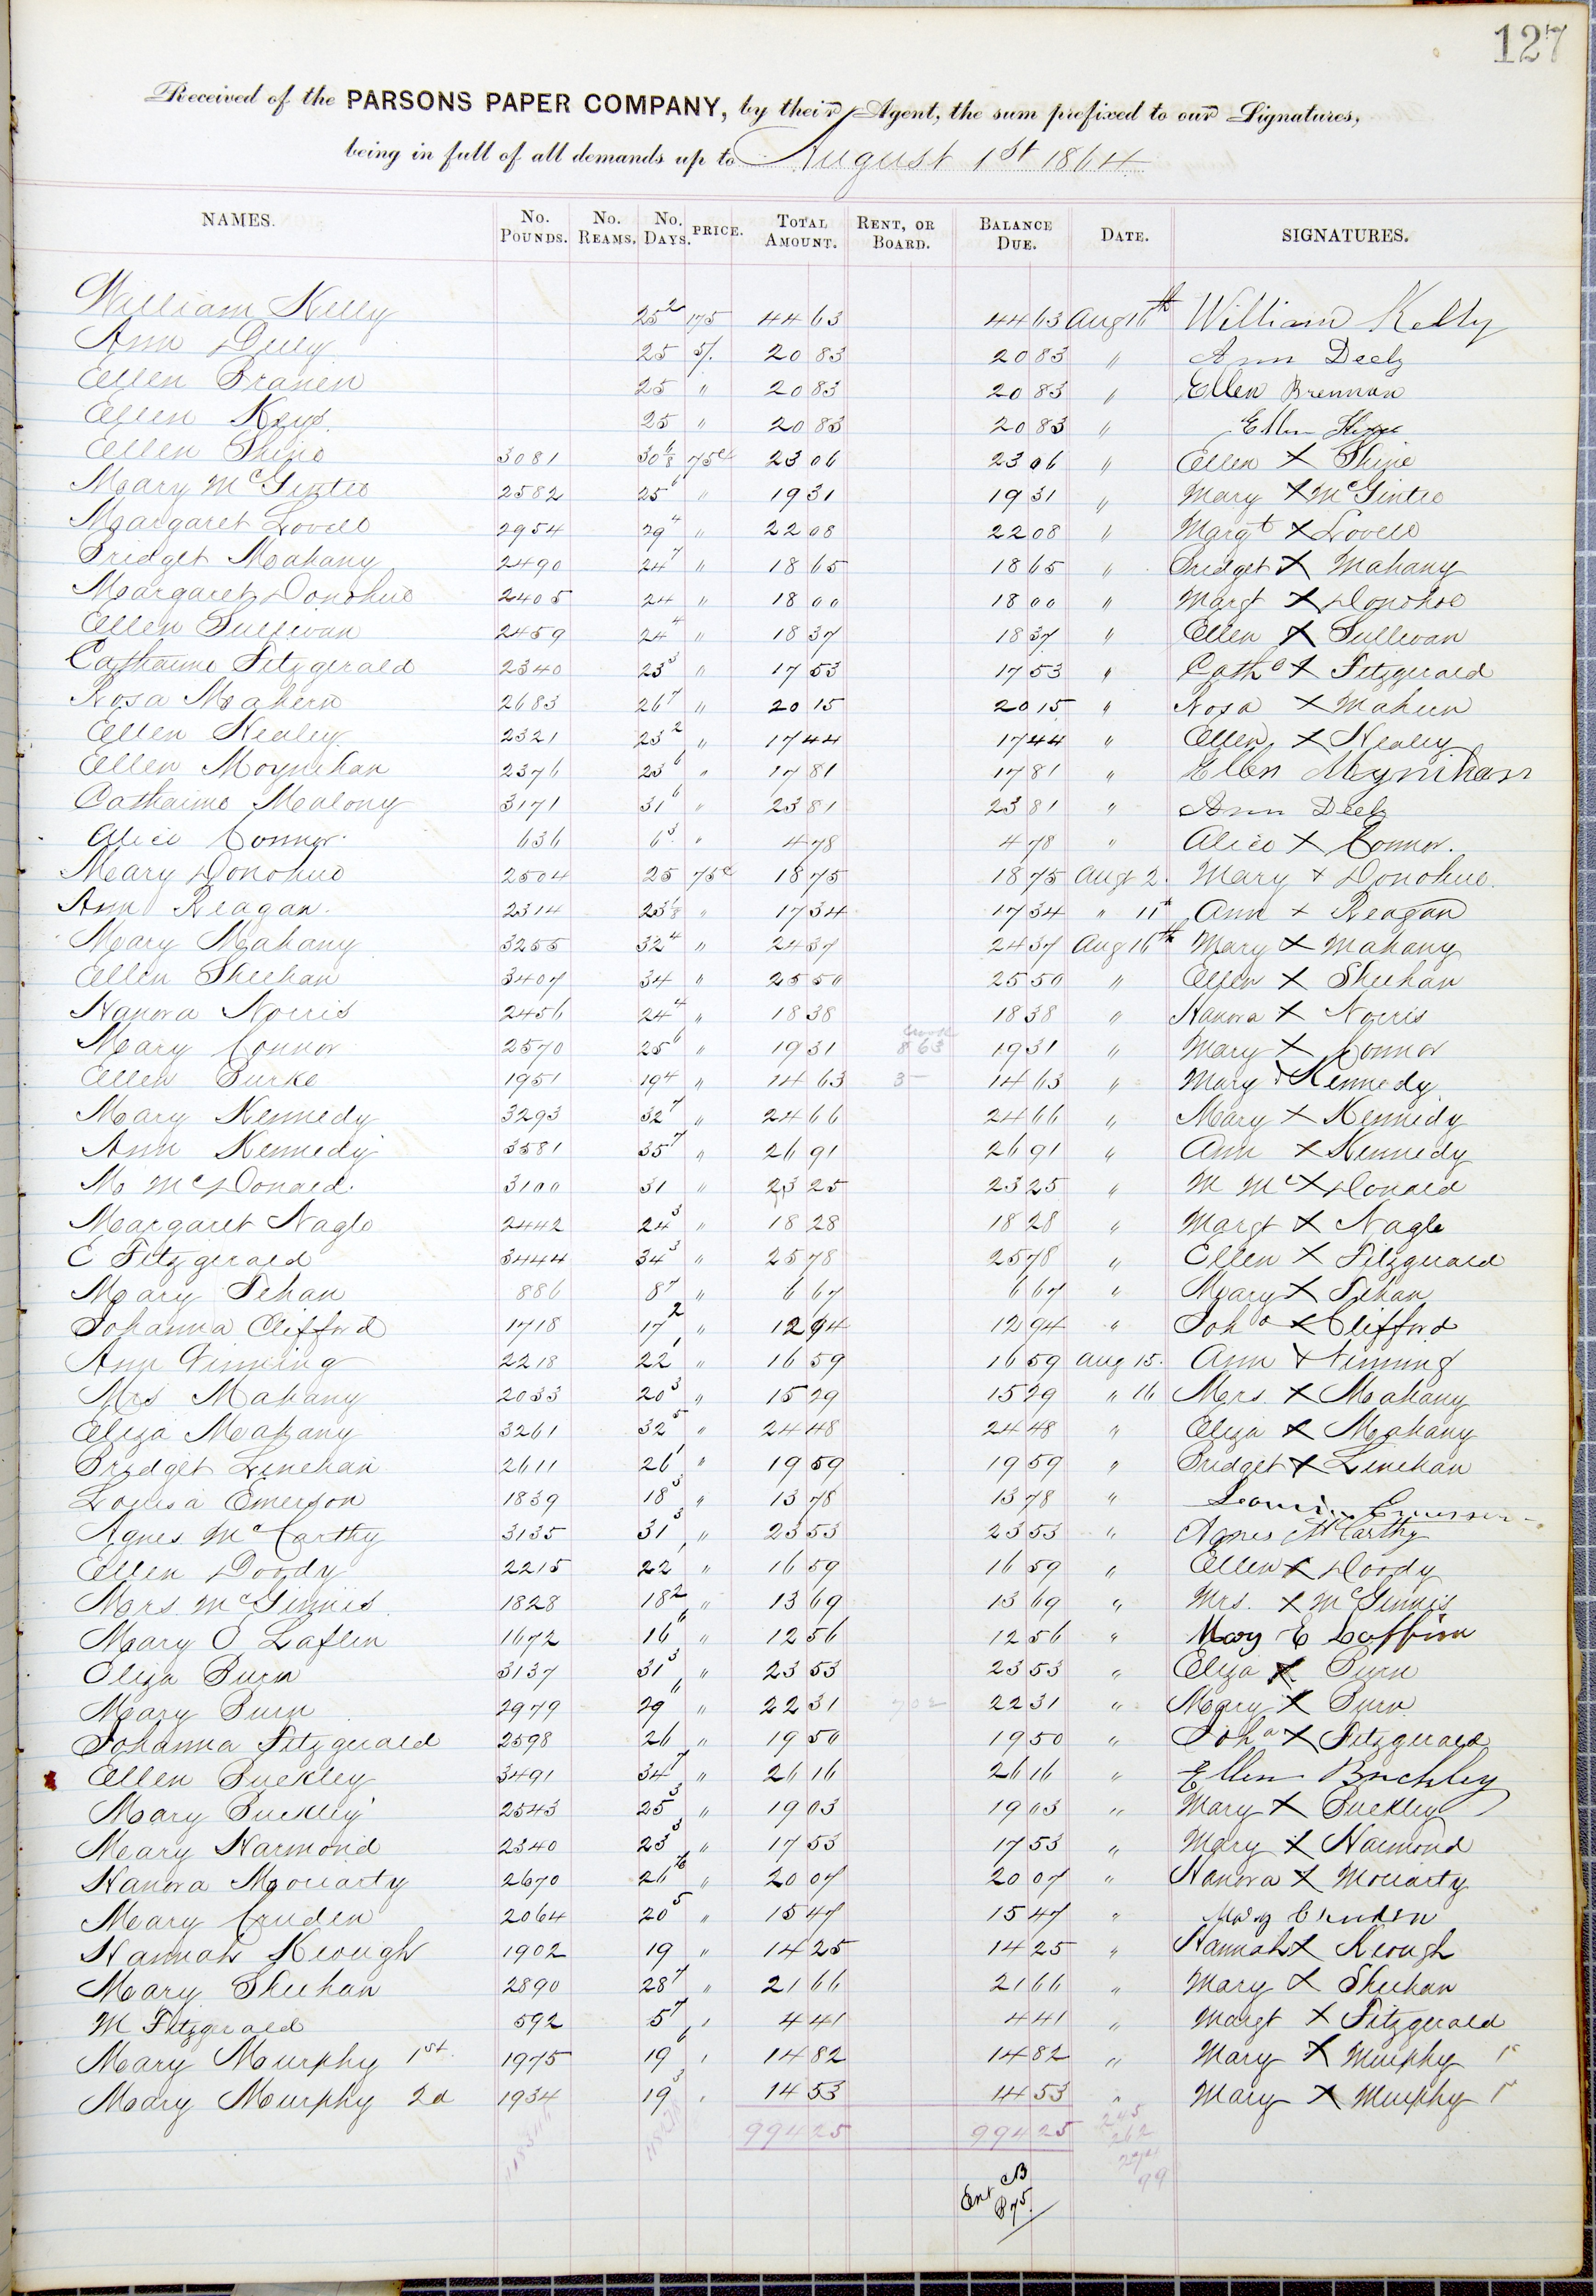 127
Received of the PARSONS PAPER COMPANY, by their Agent, the sum prefixed to our Signatures,
being in full of all demands up to August 1st 1864
NAMES. No. POUNDS. No. REAMS. No. DAYS. PRICE. TOTAL AMOUNT. RENT, OR BOARD. BALANCE DUE. DATE. SIGNATURES.
William Kelly 25 2 175 44 63 44 63 Aug 16th William Kelly
Ann Deely 25 5/. 20 83 20 83 " Ann Deely
Ellen Branen 25 " 20 83 20 83 " Ellen Brennan
Ellen Keys 25 " 20 83 20 83 " Ellen
Ellen Shine 3081 30 6/8 75c 23 06 23 06 " Ellen X Shine
Mary McGintee 2582 25 6 " 19 31 19 31 " Mary X McGintee
Margaret Lovell 2954 29 4 " 22 08 22 08 " Margt X Lovell
Bridget Mahany 2490 24 7 " 18 65 18 65 " Bridget X Mahany
Margaret Donohue 2405 24 " 18 00 18 00 " Margt X Donohoe
Ellen Sullivan 2459 24 4 " 18 37 18 37 " Ellen X Sullivan
Catharine Fitzgerald 2340 23 3 " 17 53 17 53 " Cathe X Fitzgerald
Rosa Mahern 2683 26 7 " 20 15 20 15 " Rosa X Mahern
Ellen Healey 2321 23 2 " 17 44 17 44 " Ellen X Healey
Ellen Moynehan 2376 23 6 " 17 81 17 81 " Ellen Moynihan
Catharine Malony 3171 31 6 " 23 81 23 81 " Ann Deely
Alice Connor 636 6 3 " 4 78 4 78 " Alice X Connor.
Mary Donohue 2504 25 75c 18 75 18 75 Augt 2. Mary X Donohue.
Ann Reagan. 2314 23 1/8 " 17 34 17 34 " 11th Ann X Reagan
Mary Mahany 3255 32 4 " 24 37 24 37 Aug 16th Mary X Mahany
Ellen Sheehan 3407 34 " 25 50 25 50 " Ellen X Sheehan
Hanora Norris 2456 24 4 " 18 38 18 38 " Hanora X Norris
Mary Connor 2570 25 6 " 19 31 8 63 19 31 " Mary X Connor
Ellen Burke 1951 19 4 " 14 63 3- 14 63 " Mary X Kennedy
Mary Kennedy 3293 32 7 " 24 66 24 66 " Mary X Kennedy
Ann Kennedy 3581 35 7 " 26 91 26 91 " Ann X Kennedy
M McDonald. 3100 31 " 23 25 23 25 " M Mc X Donald
Margaret Nagle 2442 24 3 " 18 28 18 28 " Margt X Nagle
E Fitzgerald 3444 34 3 " 25 78 25 78 " Ellen X Fitzgerald
Mary Fehan 886 8 7 " 6 67 6 67 " Mary X Fehan
Johanna Clifford 1718 17 2 " 12 94 12 94 " Joha X Clifford
Ann Finning 2218 22 1 " 16 59 16 59 Aug 15. Ann X Finning
Mrs Mahany 2033 20 3 " 15 29 15 29 " 16 Mrs. X Mahany
Eliza Mahany 3261 32 5 " 24 48 24 48 " Eliza X Mahany
Bridget Linehan 2611 26 1 " 19 59 19 59 " Bridget X Linehan
Louisa Emerson 1839 18 3 " 13 78 13 78 " Louisa Emerson
Agnes McCarthy 3135 31 3 " 23 53 23 53 " Agnes McCarthy
Ellen Doody 2215 22 1 " 16 59 16 59 " Ellen X Doody
Mrs. McGinnis. 1828 18 2 " 13 69 13 69 " Mrs. X McGinnis
Mary E Laflin 1672 16 6 " 12 56 12 56 " Mary E Lafflin
Eliza Burn 3137 31 3 " 23 53 23 53 " Eliza X Burn
Mary Burn 2979 29 6 " 22 31 22 31 " Mary X Burn
Johanna Fitzgerald 2598 26 " 19 50 19 50 " Joha X Fitzgerald
Ellen Buckley 3491 34 7 " 26 16 26 16 " Ellen Buckley
Mary Buckley 2543 25 3 " 19 03 19 03 " Mary X Buckley
Mary Harmond 2340 23 3 " 17 53 17 53 " Mary X Harmond
Hanora Moriarty 2670 26 " 20 07 20 07 " Hanora X Moriarty
Mary Cruden 2064 20 5 " 15 47 15 47 " Mary Cruden
Hannah Keough 1902 19 " 14 25 14 25 " Hannah X Keough
Mary Sheehan 2890 28 7 " 21 66 21 66 " Mary X Sheehan
M Fitzgerald 592 5 7 " 4 41 4 41 " Margt X Fitzgerald
Mary Murphy 1st. 1975 19 6 " 14 82 14 82 " Mary X Murphy
Mary Murphy 2d 1934 19 3 " 14 53 14 53 " Mary X Murphy
994 25 994 25
Ent CB
P75.